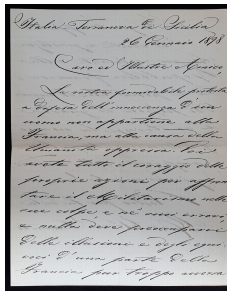 Italia Terranova di Sicilia
26 Gennaio 1898
Caro ed Illustre Amico,
La vostra formidabile protesta
a difesa dell'innocenza d'un
uomo non appartiene alla
Francia, ma alla causa della
umanità oppressa. Voi
avete tutto il coraggio delle
proprie azioni per affron
tare il Militarismo nelle
sue colpe e ne' suoi errori,
e nulla deve preoccuparvi
delle illusioni e degli equi
voci d'una parte della
Francia pur troppo ancora